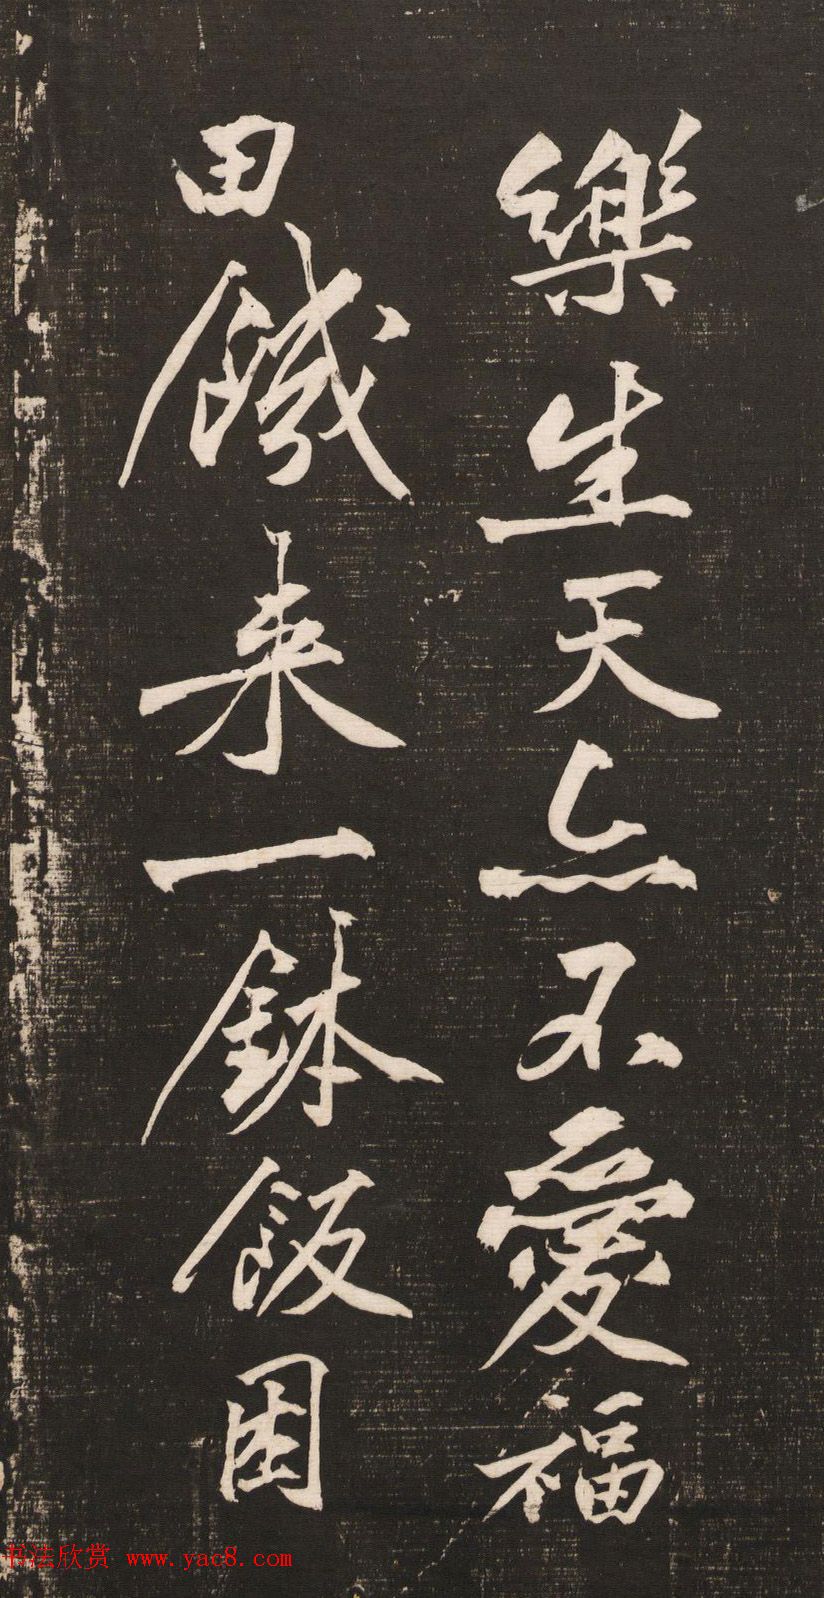 樂生天亦不愛福
田饑來一鉢飯困
书法欣赏 www.yac8.com